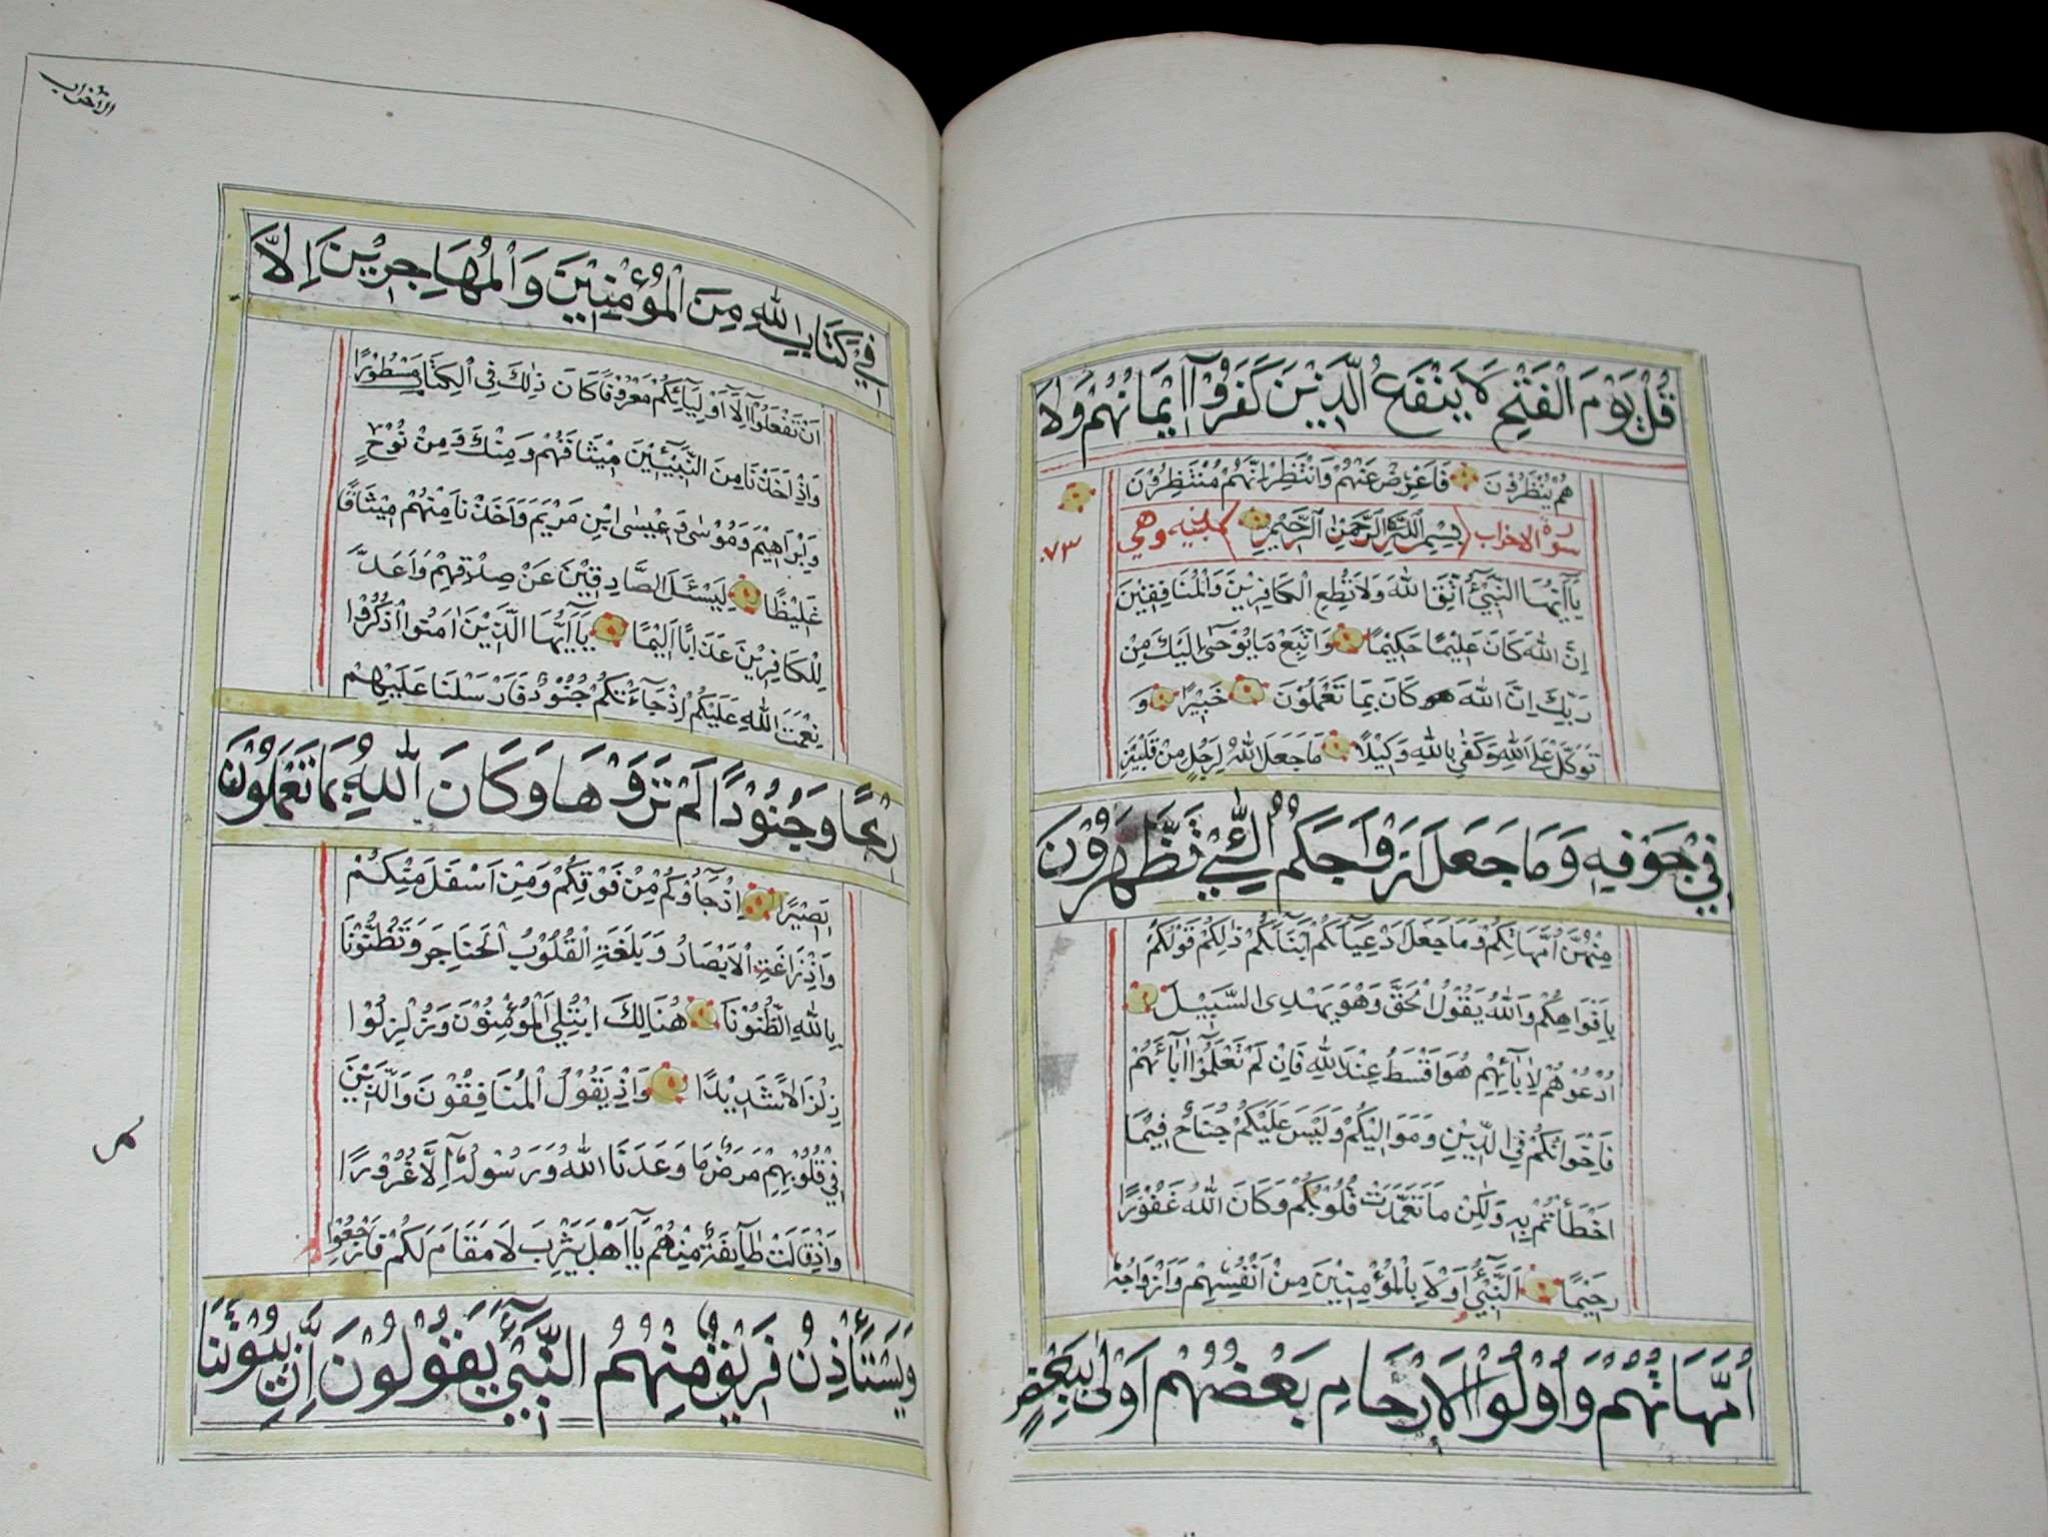 قُلْ يَوْمَ الْفَتْحِ لَا يَنْفَعُ الَّذِيْنَ كَفَرُوْا اِيْمَانُهُمْ وَلَا
هُمْ يُنْظَرُوْنَ فَاَعْرِضْ عَنْهُمْ وَانْتَظِرْ اِنَّهُمْ مُنْتَظِرُوْنَ
سورة الاحزاب بِسْمِ اللّٰهِ الرَّحْمٰنِ الرَّحِيْمِ وهي
٧٣
يَآ اَيُّهَا النَّبِيُّ اتَّقِ اللّٰهَ وَلَا تُطِعِ الْكَافِرِيْنَ وَالْمُنَافِقِيْنَ
اِنَّ اللّٰهَ كَانَ عَلِيْمًا حَكِيْمًا وَاتَّبِعْ مَا يُوْحٰى اِلَيْكَ مِنْ
رَبِّكَ اِنَّ اللّٰهَ كَانَ بِمَا تَعْمَلُوْنَ خَبِيْرًا وَ
تَوَكَّلْ عَلَى اللّٰهِ وَكَفٰى بِاللّٰهِ وَكِيْلًا مَا جَعَلَ اللّٰهُ لِرَجُلٍ مِنْ قَلْبَيْنِ
فِيْ جَوْفِهٖ وَمَا جَعَلَ اَزْوَاجَكُمُ الّٰٓئِيْ تُظَّهَرُوْنَ
مِنْهُنَّ اُمَّهَاتِكُمْ وَمَا جَعَلَ اَدْعِيَآءَكُمْ اَبْنَآءَكُمْ ذٰلِكُمْ قَوْلُكُمْ
بِاَفْوَاهِكُمْ وَاللّٰهُ يَقُوْلُ الْحَقَّ وَهُوَ يَهْدِى السَّبِيْلَ
اُدْعُوْهُمْ لِاٰبَآئِهِمْ هُوَ اَقْسَطُ عِنْدَ اللّٰهِ فَاِنْ لَمْ تَعْلَمُوْٓا اٰبَآئَهُمْ
فَاِخْوَانُكُمْ فِى الدِّيْنِ وَمَوَالِيْكُمْ وَلَيْسَ عَلَيْكُمْ جُنَاحٌ فِيْمَا
اَخْطَأْتُمْ بِهٖ وَلٰكِنْ مَا تَعَمَّدَتْ قُلُوْبُكُمْ وَكَانَ اللّٰهُ غَفُوْرًا
رَحِيْمًا اَلنَّبِيُّ اَوْلٰى بِالْمُؤْمِنِيْنَ مِنْ اَنْفُسِهِمْ وَاَزْوَاجُهٗ
اُمَّهَاتُهُمْ وَاُوْلُوا الْاَرْحَامِ بَعْضُهُمْ اَوْلٰى بِبَعْضٍ
الأحزاب
فِيْ كِتَابِ اللّٰهِ مِنَ الْمُؤْمِنِيْنَ وَالْمُهَاجِرِيْنَ اِلَّا
اَنْ تَفْعَلُوْٓا اِلٰٓى اَوْلِيَآئِكُمْ مَعْرُوْفًا كَانَ ذٰلِكَ فِى الْكِتَابِ مَسْطُوْرًا
وَاِذْ اَخَذْنَا مِنَ النَّبِيّٖنَ مِيْثَاقَهُمْ وَمِنْكَ وَمِنْ نُوْحٍ
وَاِبْرَاهِيْمَ وَمُوْسٰى وَعِيْسَى ابْنِ مَرْيَمَ وَاَخَذْنَا مِنْهُمْ مِيْثَاقًا
غَلِيْظًا لِيَسْئَلَ الصَّادِقِيْنَ عَنْ صِدْقِهِمْ وَاَعَدَّ
لِلْكَافِرِيْنَ عَذَابًا اَلِيْمًا يَآ اَيُّهَا الَّذِيْنَ اٰمَنُوا اذْكُرُوْا
نِعْمَتَ اللّٰهِ عَلَيْكُمْ اِذْ جَآءَتْكُمْ جُنُوْدٌ فَاَرْسَلْنَا عَلَيْهِمْ
رِيْحًا وَجُنُوْدًا لَمْ تَرَوْهَا وَكَانَ اللّٰهُ بِمَا تَعْمَلُوْنَ
بَصِيْرًا اِذْ جَآؤُكُمْ مِنْ فَوْقِكُمْ وَمِنْ اَسْفَلَ مِنْكُمْ
وَاِذْ زَاغَتِ الْاَبْصَارُ وَبَلَغَتِ الْقُلُوْبُ الْحَنَاجِرَ وَتَظُنُّوْنَ
بِاللّٰهِ الظُّنُوْنَا هُنَالِكَ ابْتُلِيَ الْمُؤْمِنُوْنَ وَزُلْزِلُوْا
زِلْزَالًا شَدِيْدًا وَاِذْ يَقُوْلُ الْمُنَافِقُوْنَ وَالَّذِيْنَ
فِيْ قُلُوْبِهِمْ مَرَضٌ مَا وَعَدَنَا اللّٰهُ وَرَسُوْلُهٗٓ اِلَّا غُرُوْرًا
وَاِذْ قَالَتْ طَآئِفَةٌ مِنْهُمْ يَآ اَهْلَ يَثْرِبَ لَا مَقَامَ لَكُمْ فَارْجِعُوْا
وَيَسْتَأْذِنُ فَرِيْقٌ مِنْهُمُ النَّبِيَّ يَقُوْلُوْنَ اِنَّ بُيُوْتَنَا